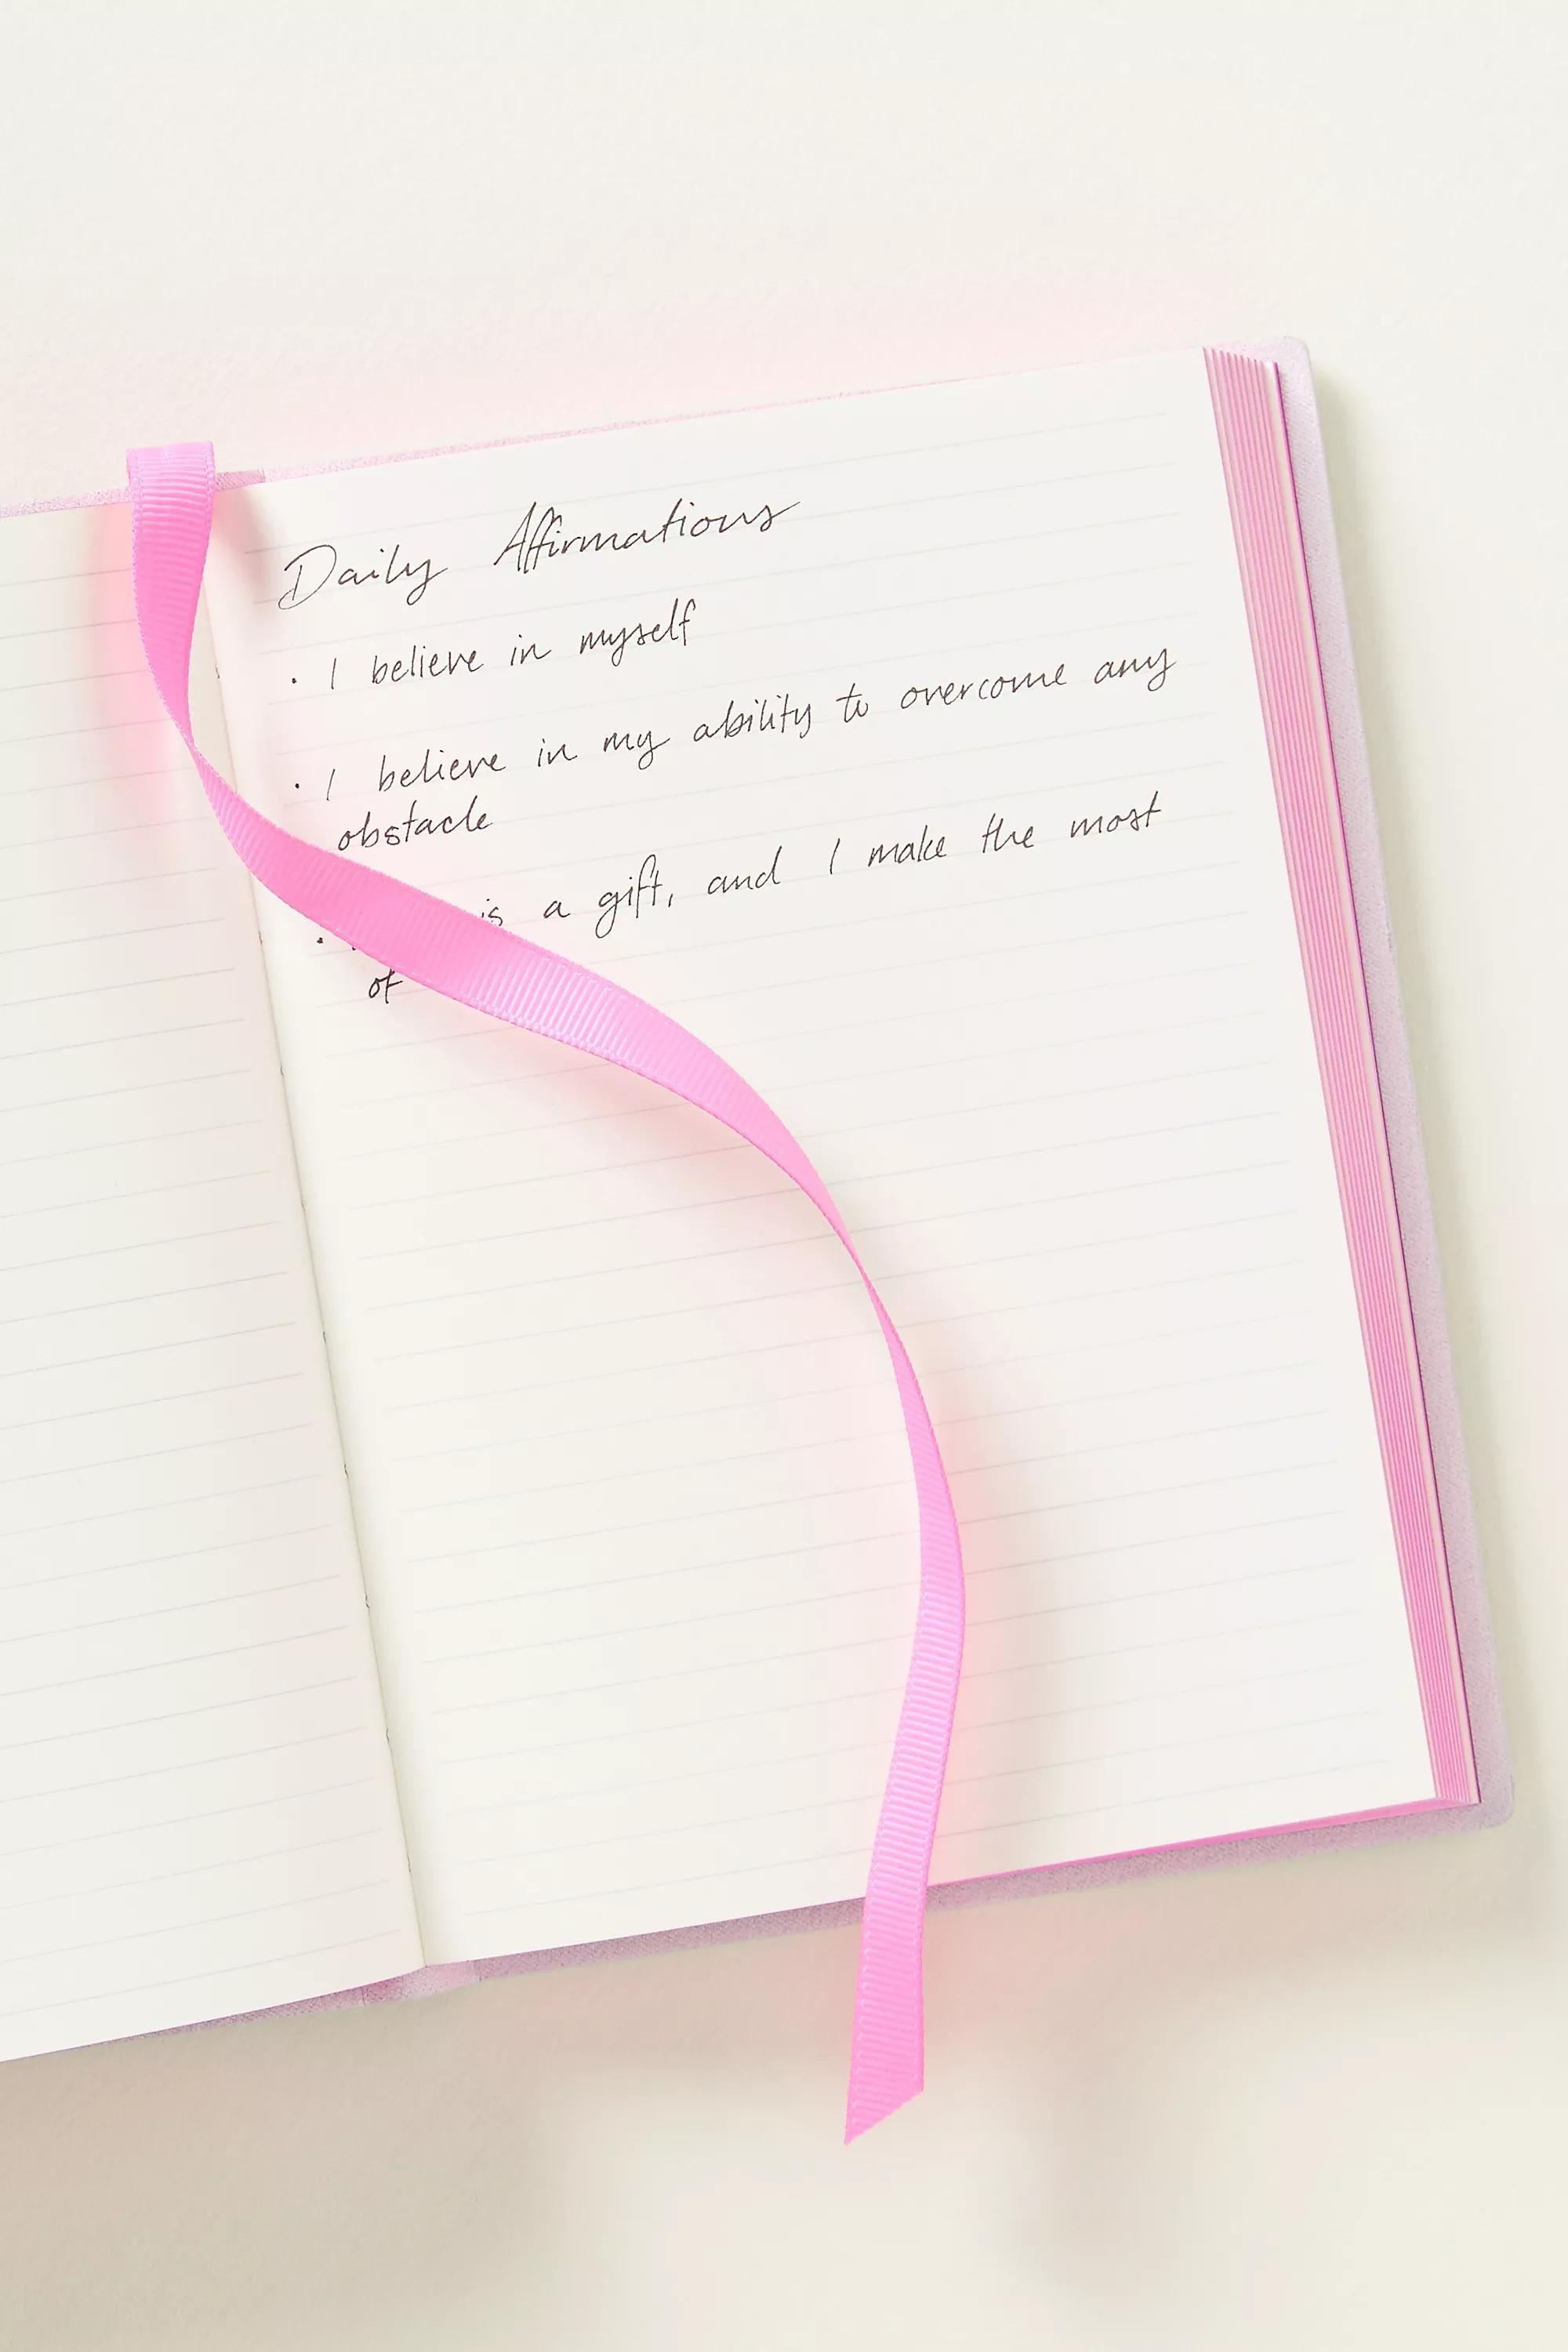 Daily Affirmations
· I believe in myself
· I believe in my ability to overcome any
obstacle
· is a gift, and I make the most
of